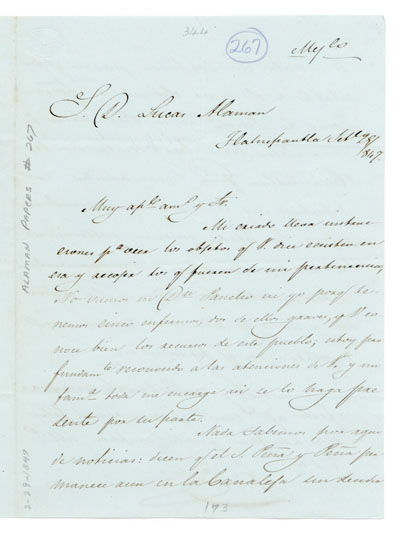 344
267
Mejco
S. D. Lucas Alaman
Tlalnepantla 29/
847.
Muy apo. amo. y Sr.
Mi criado lleva instruc
ciones pa. ver los objetos q. V. dice existen en
esa y recoger los q. fueren de mi pertenencia,
No vamos ni Da. ni yo porq. te
nemos cinco enfermos, dos de ellos graves, y V. co
noce bien los recursos de este pueblo; estoy pro
fundamte. reconocido a las atenciones de V. y mi
fama. toda me encarga asi se lo haga pre
sente por su parte.
Nada sabemos por aqui
de noticias: dicen q. el S. Peña y Peña per
manece aun en la Canaleja sin
193
ALAMAN PAPERS # 267